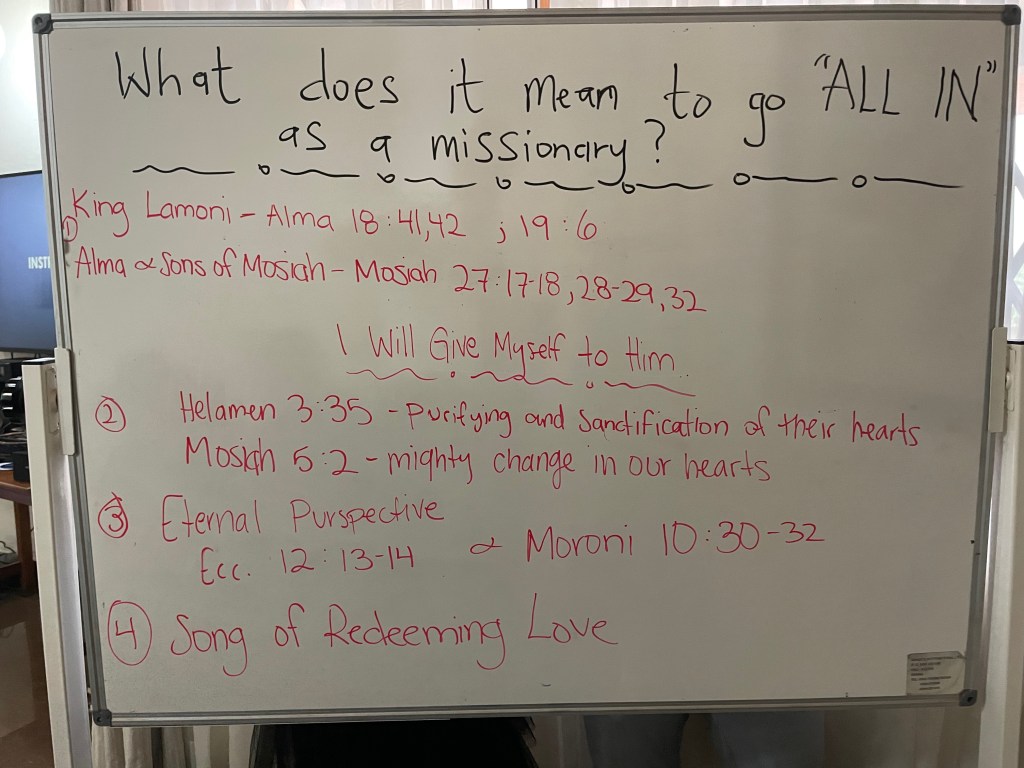 What does it mean to go "ALL IN"
as a missionary?
① King Lamoni - Alma 18:41,42 ; 19:6
Alma & Sons of Mosiah - Mosiah 27:17-18, 28-29, 32
I Will Give Myself to Him
② Helamen 3:35 - purifying and sanctification of their hearts
Mosiah 5:2 - mighty change in our hearts
③ Eternal Purspective
Ecc. 12:13-14 & Moroni 10:30-32
④ Song of Redeeming Love
INSTI